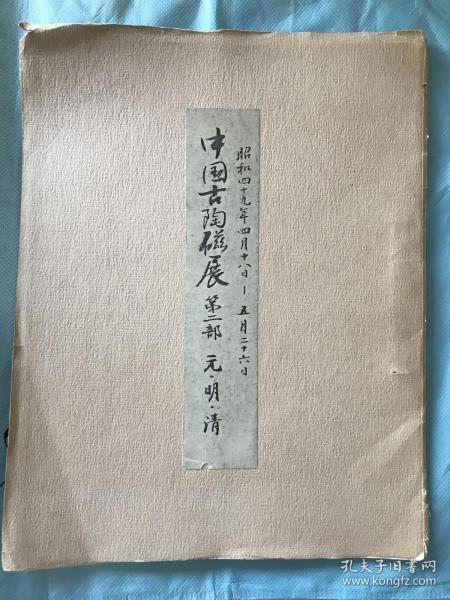 昭和四十九年四月十八日－五月二十六日
中国古陶磁展 第二部 元・明・清
孔夫子旧书网
www.kongfz.com